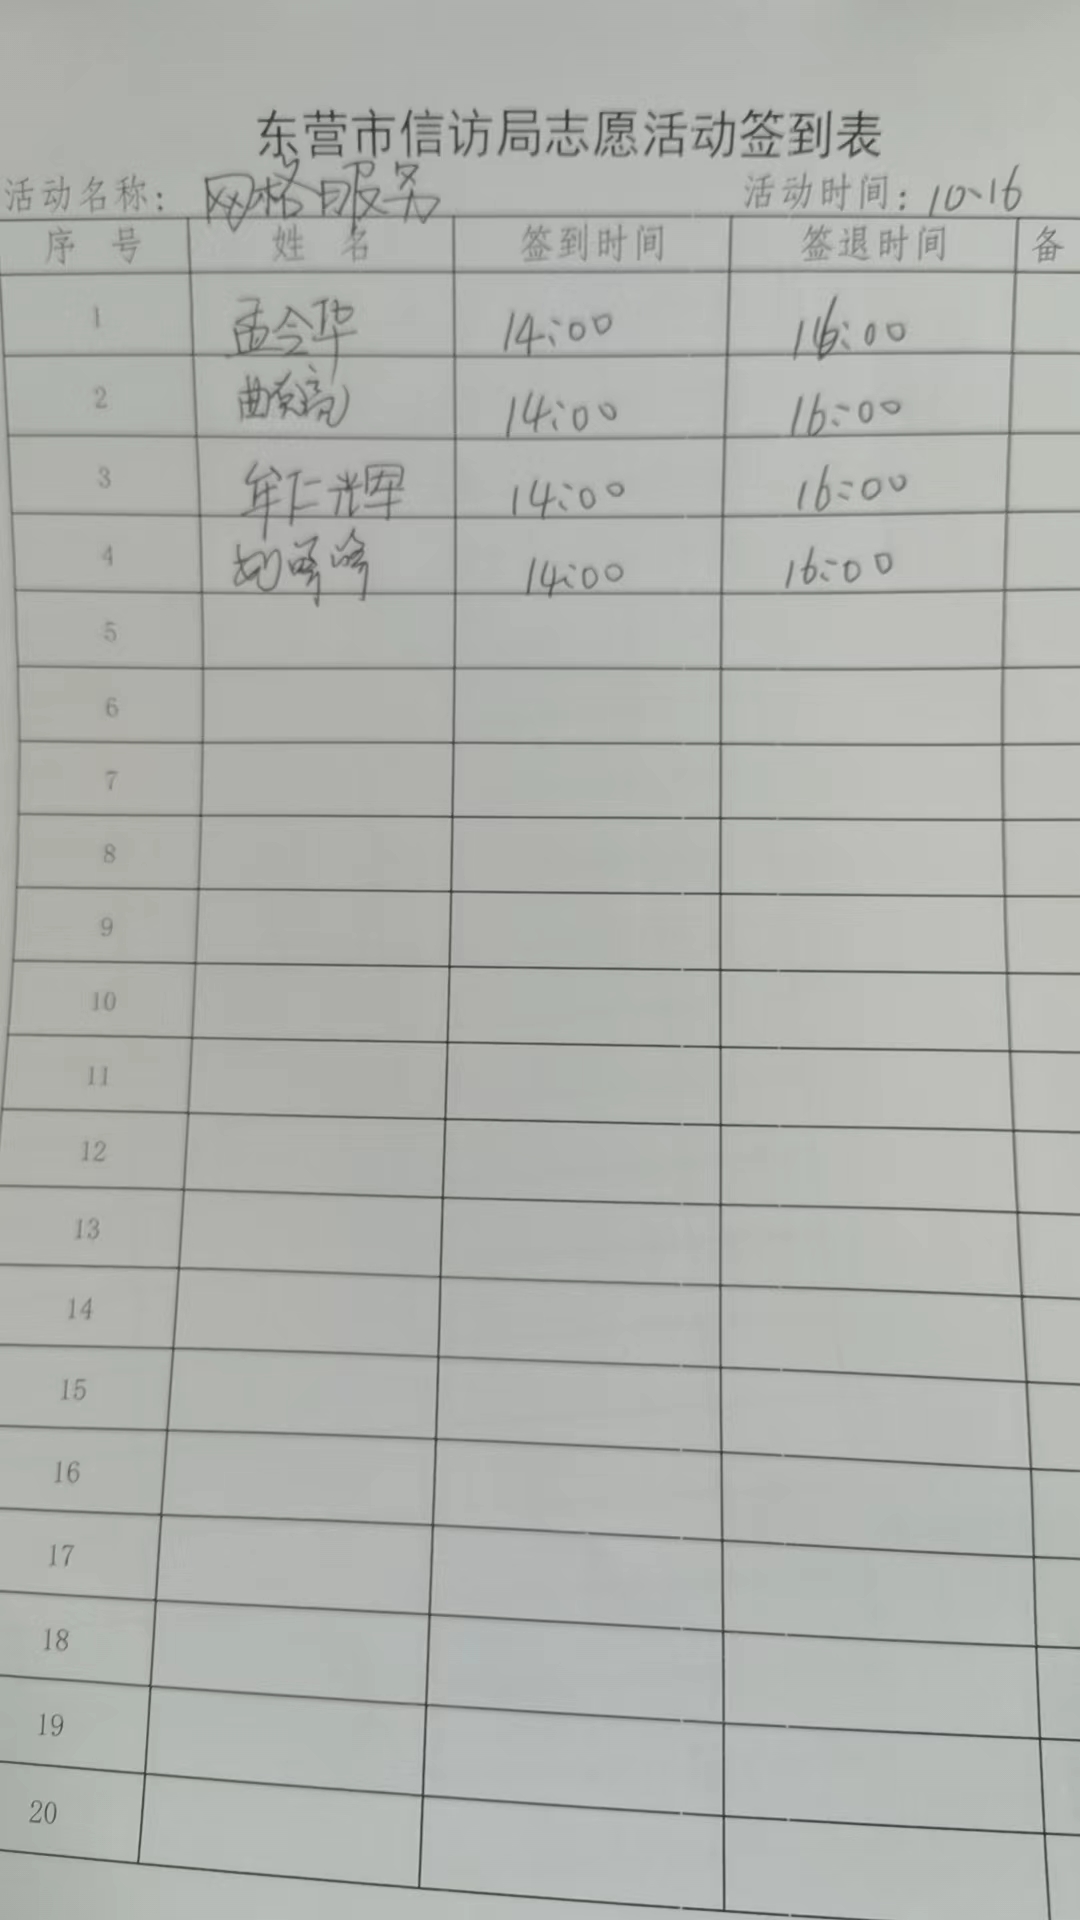 东营市信访局志愿活动签到表
活动名称：网格服务 活动时间：10.16
序 号 姓 名 签到时间 签退时间 备
1 孟令华 14:00 16:00
2 曲 14:00 16:00
3 牟仁辉 14:00 16:00
4 14:00 16:00
5
6
7
8
9
10
11
12
13
14
15
16
17
18
19
20